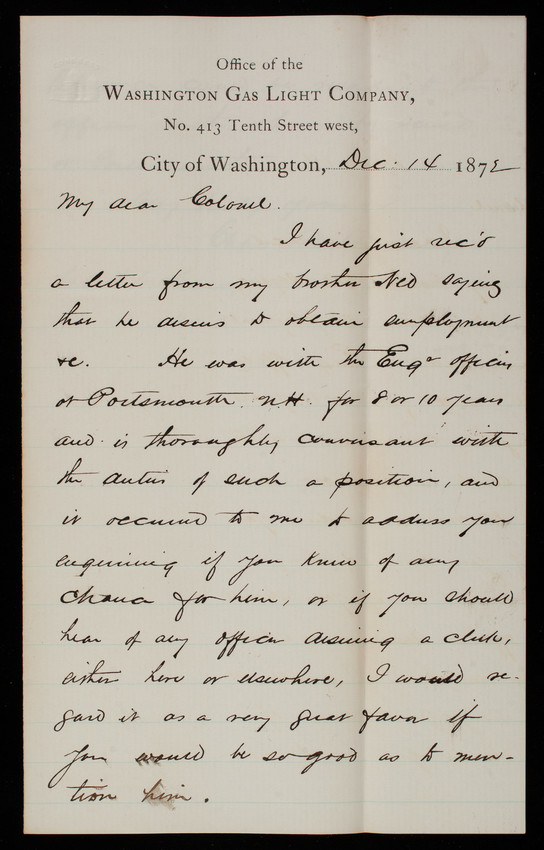 Office of the
Washington Gas Light Company,
No. 413 Tenth Street west,
City of Washington, Dec. 14 1872
My dear Colonel.
I have just rec'd
a letter from my brother Ned saying
that he desires to obtain employment
&c. He was with the Engr officers
at Portsmouth N.H. for 8 or 10 years
and is thoroughly conversant with
the duties of such a position, and
it occurred to me to address you
enquiring if you knew of any
chance for him, or if you should
hear of any officer desiring a clerk,
either here or elsewhere, I would re-
gard it as a very great favor if
you would be so good as to men-
tion him.